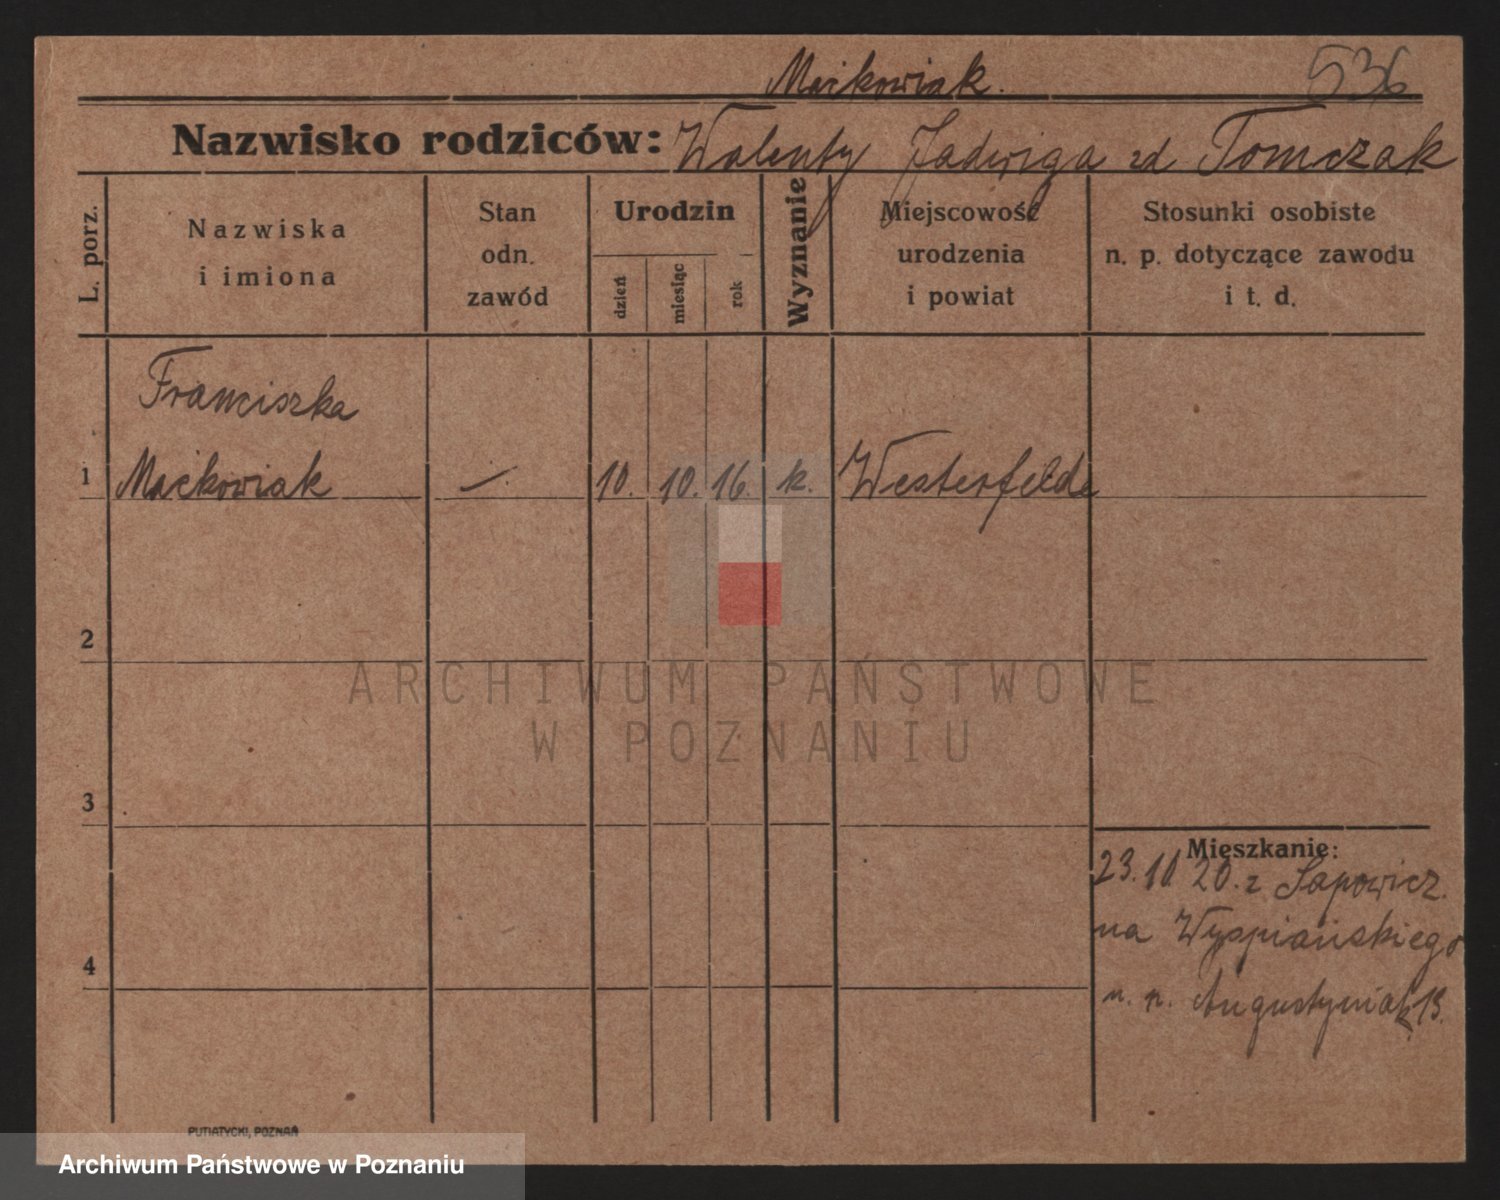 Maćkowiak.
536
Nazwisko rodziców: Walenty Jadwiga zd Tomczak
L. porz.
Nazwiska
i imiona
Stan
odn.
zawód
Urodzin
dzień
miesiąc
rok
Wyznanie
Miejscowość
urodzenia
i powiat
Stosunki osobiste
n. p. dotyczące zawodu
i t. d.
Franciszka
1 Maćkowiak — 10. 10. 16. k. Westerfelde
2
3
4
Mieszkanie:
23. 10 20. z Sapowicz.
na Wyspiańskiego
u. p. Augustyniak 13.
PUTIATYCKI, POZNAŃ
ARCHIWUM PAŃSTWOWE
W POZNANIU
Archiwum Państwowe w Poznaniu